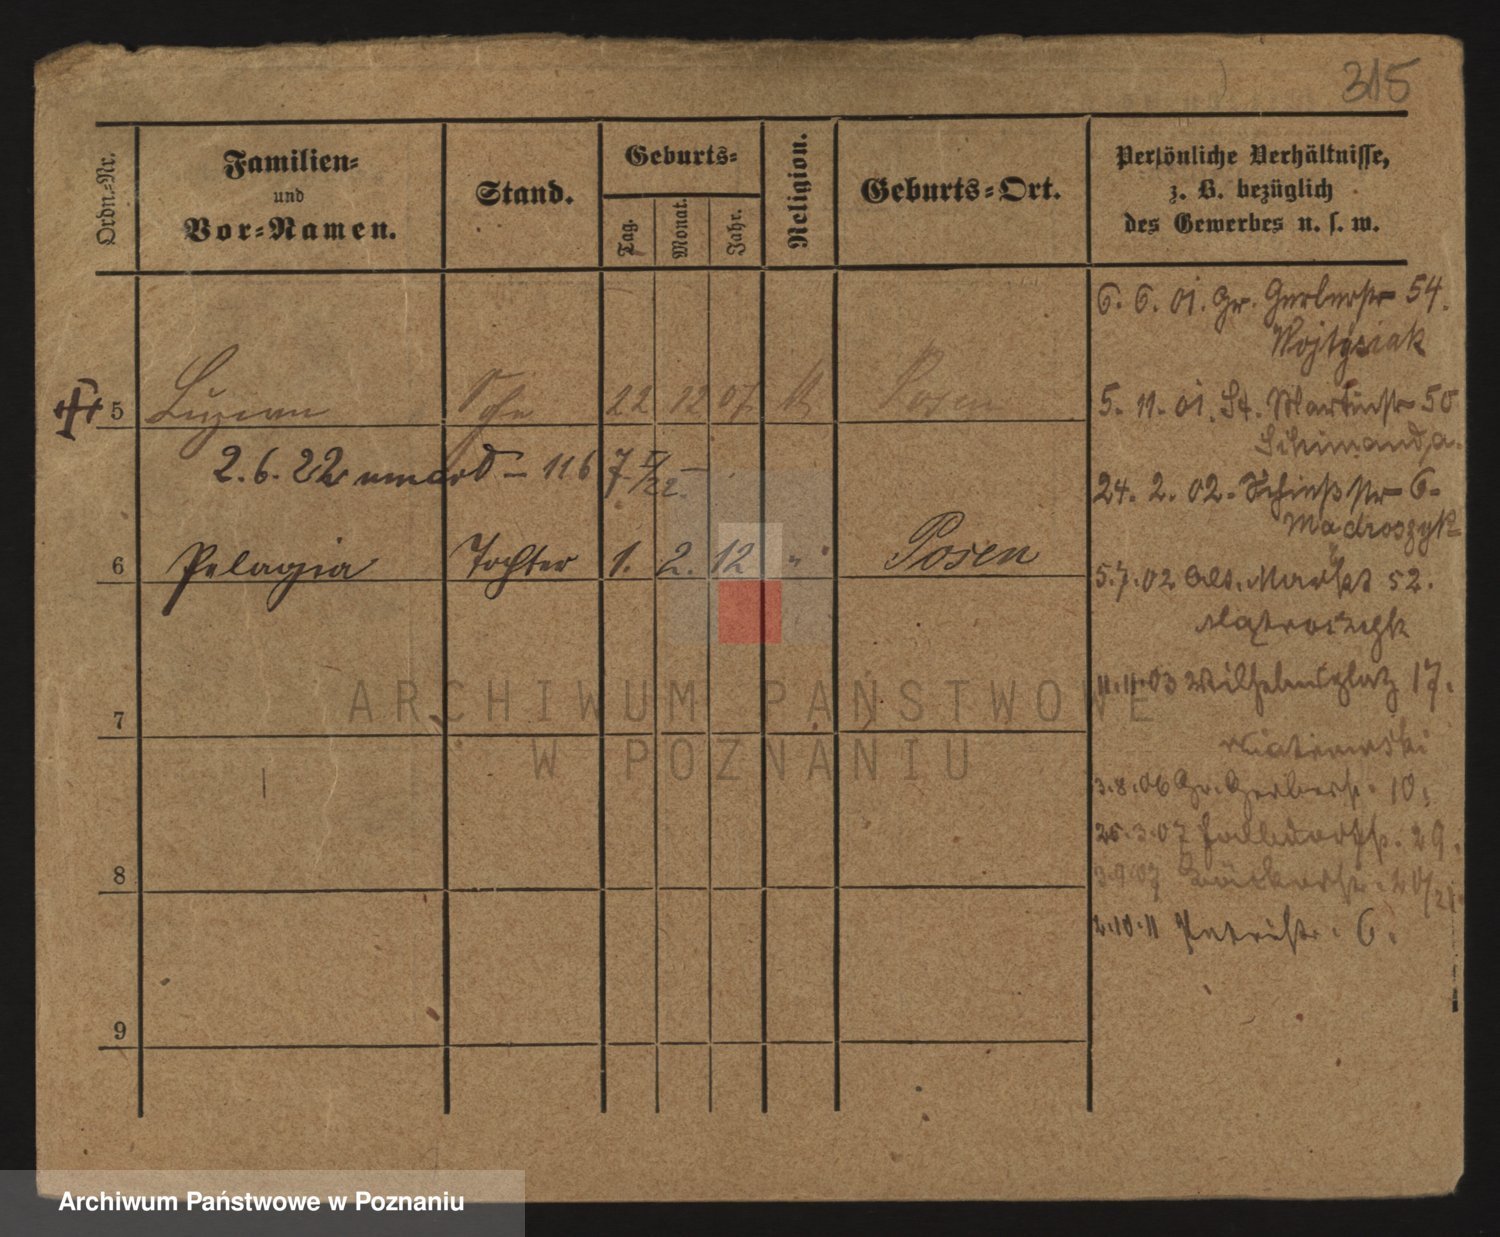 315
Ordn.-Nr.
Familien-
und
Vor-Namen.
Stand.
Geburts-
Tag.
Monat.
Jahr.
Religion.
Geburts-Ort.
Persönliche Verhältnisse,
z. B. bezüglich
des Gewerbes u. s. w.
6. 6. 01. Gr. Gerberstr 54.
Wojtysiak
5 Luzian 22 12 07 Posen
5. 11. 01. St. Martinstr 50
2. 6. 22 116
24. 2. 02. Schießstr 6.
Madroszyk
6 Pelagia Tochter 1. 2. 12 " Posen
5.7.02 Alt. Markt 52.
11.11.03 Wilhelmsplatz 17.
7
3.8.06 Gr. Gerberstr. 10.
25.3.07 29.
8
3.9.07 Bäckerstr. 20/21.
2.10.11 Petristr. 6.
9
ARCHIWUM PAŃSTWOWE
W POZNANIU
Archiwum Państwowe w Poznaniu